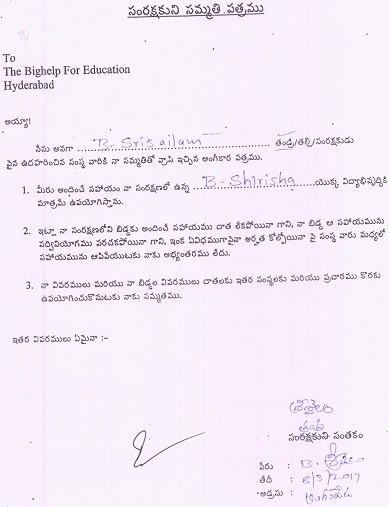 సంరక్షకుని సమ్మతి పత్రము
To
The Bighelp For Education
Hyderabad
అయ్యా!
నేను అనగా B. Srisailam తండ్రి/తల్లి/సంరక్షకుడు
పైన ఉదహరించిన సంస్థ వారికి నా సమ్మతితో వ్రాసి ఇచ్చిన అంగీకార పత్రము.
1. మీరు అందించే సహాయం నా సంరక్షణలో ఉన్న B. Shirisha యొక్క విద్యాభివృద్ధికి
మాత్రమే ఉపయోగిస్తాను.
2. ఇట్లా నా సంరక్షణలోని బిడ్డకు అందించే సహాయము దాత లేకపోయినా గాని, నా బిడ్డ ఆ సహాయమును
సద్వినియోగము పరచకపోయినా గాని, ఇంక ఏవిధముగానైనా అర్హత కోల్పోయినా పై సంస్థ వారు మధ్యలో
సహాయమును ఆపివేయుటకు నాకు అభ్యంతరము లేదు.
3. నా వివరములు మరియు నా బిడ్డల వివరములు దాతలకు ఇతర సంస్థలకు మరియు ప్రచారము కొరకు
ఉపయోగించుకొనుటకు నాకు సమ్మతము.
ఇతర వివరములు ఏమైనా :-
శ్రీశైలం
సంరక్షకుని సంతకం
పేరు : B. శ్రీశైలం
తేదీ : 8/3/2017
అడ్రసు :